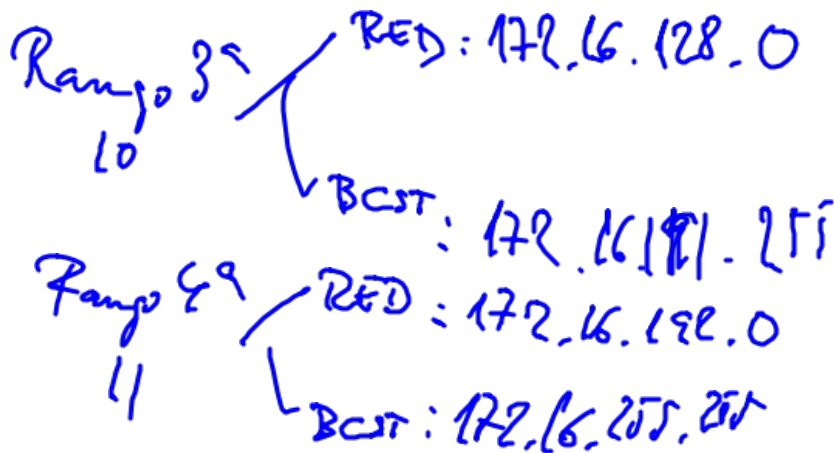 Rango 3ª RED: 172.16.128.0
10
BCST: 172.16.191.255
Rango 4ª RED: 172.16.192.0
11
BCST: 172.16.255.255